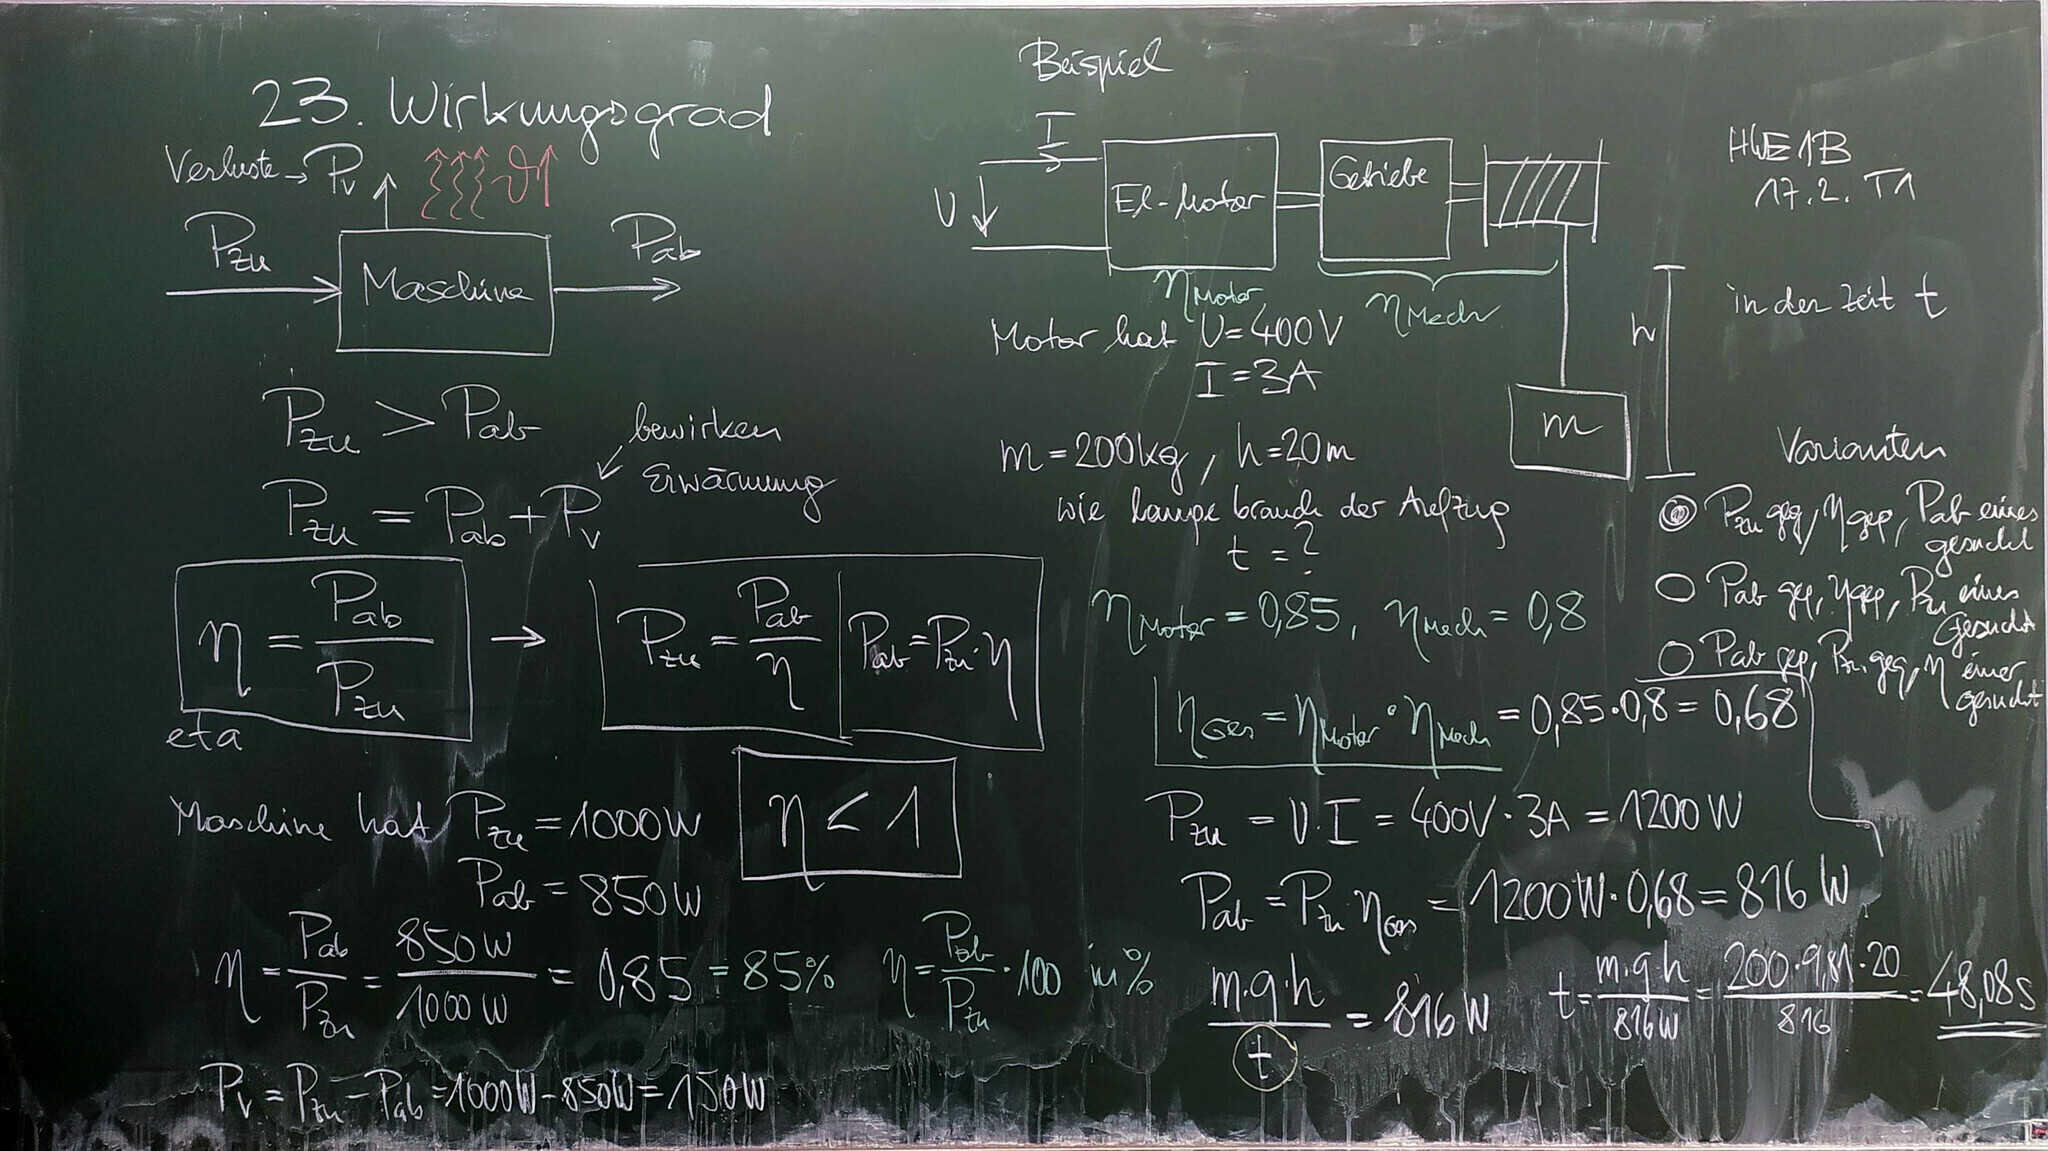 23. Wirkungsgrad
Verluste → Pv ϑ↑
Pzu Maschine Pab
Pzu > Pab
bewirken
Erwärmung
Pzu = Pab + Pv
η = Pab / Pzu → Pzu = Pab / η | Pab = Pzu · η
eta
η < 1
Maschine hat Pzu = 1000W
Pab = 850W
η = Pab / Pzu = 850W / 1000W = 0,85 = 85% η = Pab / Pzu · 100 in %
Pv = Pzu - Pab = 1000W - 850W = 150W
Beispiel
I
U El-Motor Getriebe
ηMotor ηMech
m
h
in der Zeit t
HWE1B
17.2. T1
Motor hat U = 400V
I = 3A
m = 200kg, h = 20m
wie lange brauch der Aufzug
t = ?
ηMotor = 0,85, ηMech = 0,8
ηGes = ηMotor · ηMech = 0,85 · 0,8 = 0,68
Pzu = U · I = 400V · 3A = 1200W
Pab = Pzu · ηGes = 1200W · 0,68 = 816 W
m·g·h / t = 816 W t = m·g·h / 816W = 200·9,81·20 / 816 = 48,08s
Varianten
Pzu geg, η geg, Pab eines
gesucht
Pab geg, η geg, Pzu eines
gesucht
Pab geg, Pzu geg, η einer
gesucht